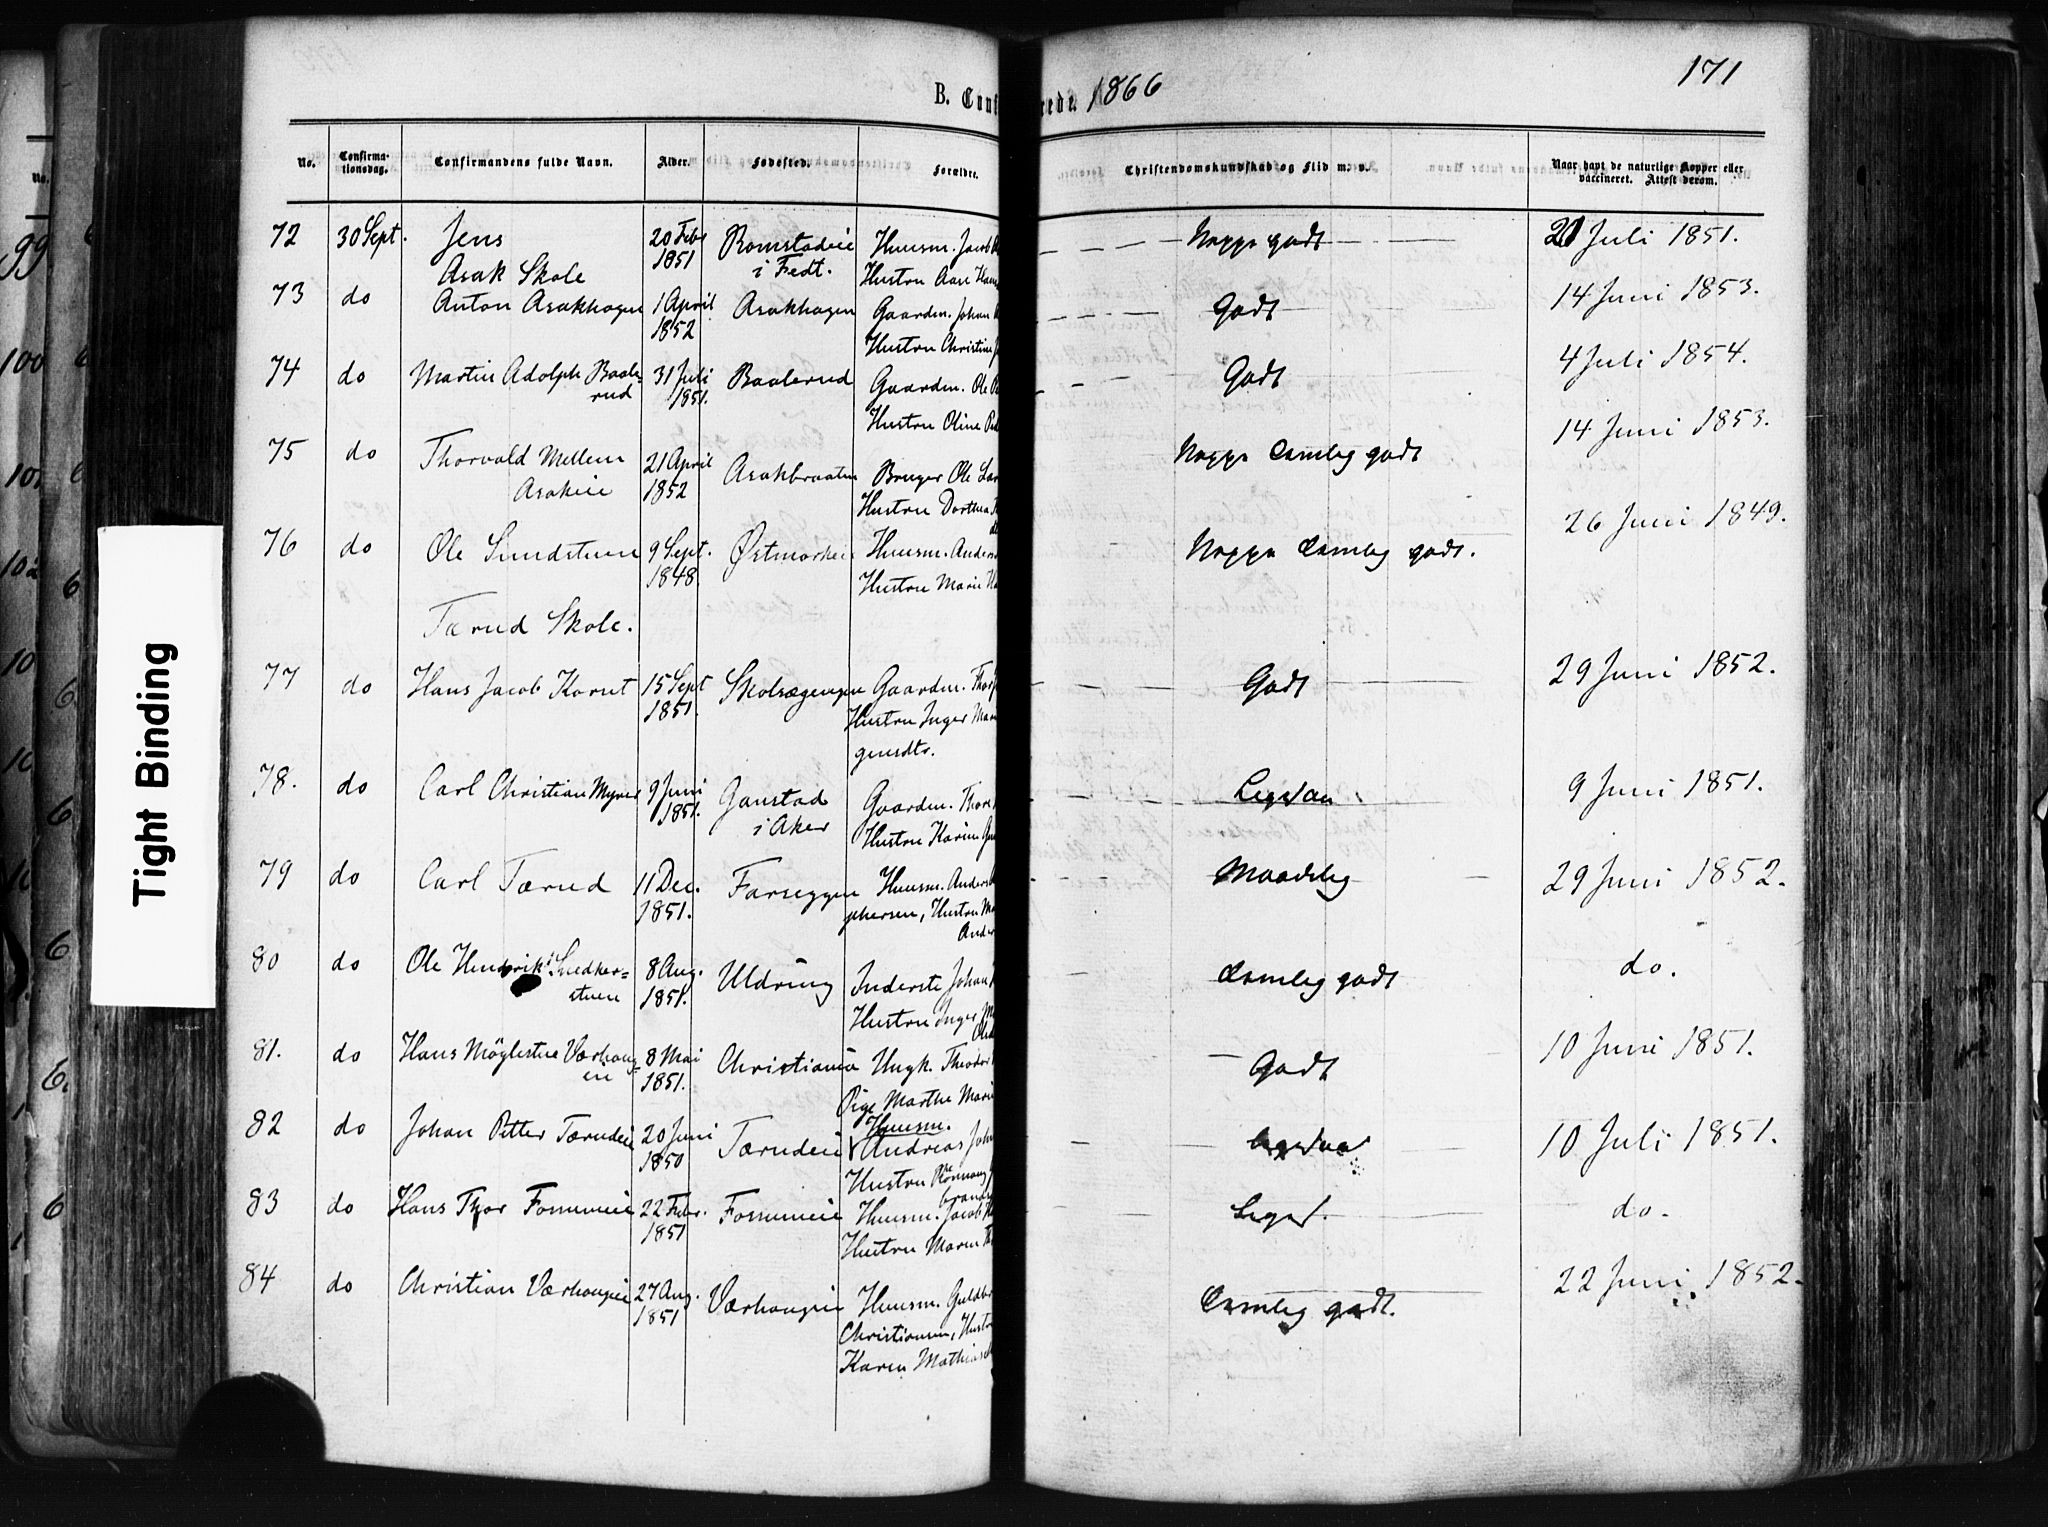 171
B. Conf rede. 1866
No. Confirma-tionsdag. Confirmandens fulde Navn. Alder. Fødested. Forældre. Christendomskundskab og Flid m. v. Naar havt de naturlige Kopper eller vaccineret. Attest derom.
72 30 Sept. Jens 20 Febr 1851 Romstadeie i Fedt. Huusm. Jacob Hustru Aase Neppe godt 20 Juli 1851.
Asak Skole
73 do Anton Asakhagen 1 April 1852 Asakhagen Gaardm. Johan Hustru Christine Godt 14 Juni 1853.
74 do Martin Adolph Baale-rud 31 Juli 1851. Baalerud Gaardm. Ole Hustru Oline Godt 4 Juli 1854.
75 do Thorvald Mellem Asakeie 21 April 1852 Asakbraaten Bruger Ole Lar Hustru Dorthea Neppe Temlig godt 14 Juni 1853.
76 do Ole Sundstuen 9 Sept. 1848. Østmorkeie Huusm. Anders Hustru Marie Neppe Temlig godt. 26 Juni 1849.
Tærud Skole.
77 do Hans Jacob Korset 15 Sept 1851. Gaardm. Thor Hustru Inger Mar gensdtr. Godt 29 Juni 1852.
78. do Carl Christian Myrer 9 Juni 1851. Ganstad i Aker Gaardm. Thore Hustru Karine 9 Juni 1851.
79 do Carl Tærud 11 Dec. 1851. Farseggen Huusm. Anders phersen, Hustru Ander Maadelig 29 Juni 1852.
80 do Ole Hendrik Snedker=stuen 8 Aug. 1851. Uldring Inderste Johan Hustru Inger Temlig godt do.
81. do Hans Møglestue Værhaug=en 8 Mai 1851. Christiania Ungk. Theodor Pige Marthe Marie Godt 10 Juni 1851.
82 do Johan Petter Tærudeie 20 Juni 1850 Tærudeie Huusm. Andreas Joh Hustru 10 Juli 1851.
83 do Hans Thor Fonnumeie 22 Febr. 1851 Fonnumeie Huusm. Jacob Hustru Maren do.
84 do Christian Værhaugeie 27 Aug. 1851 Værhaugeie Huusm. Guldbr Christiansen, Hustru Karen Mathias Temlig godt. 22 Juni 1852.
Tight Binding